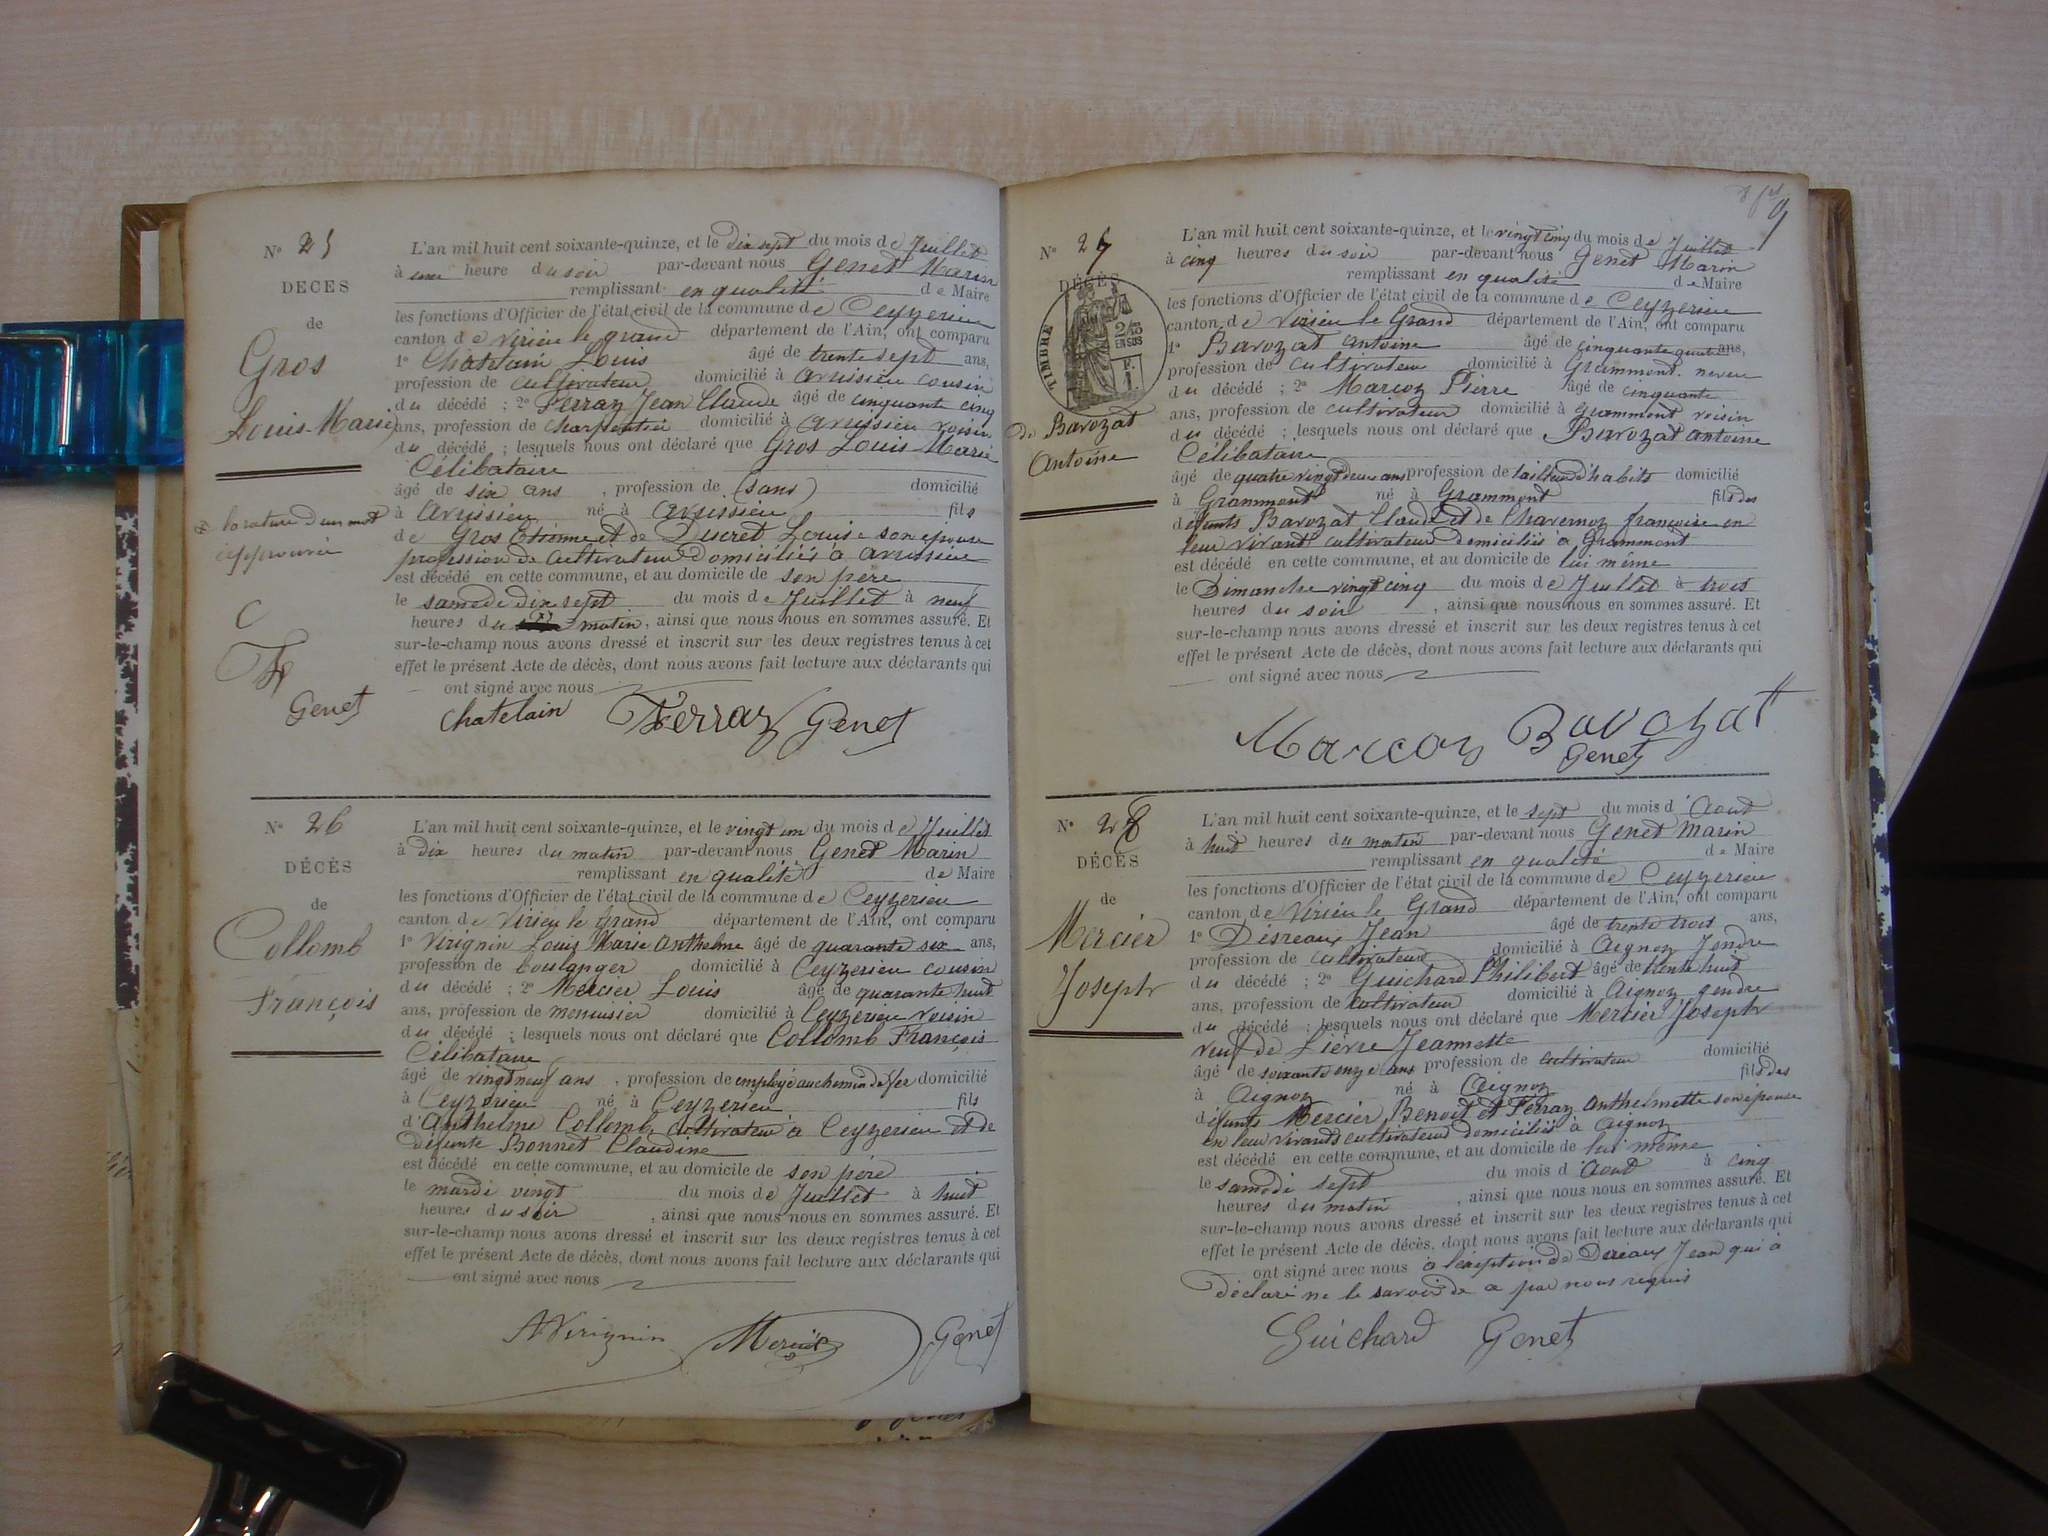 N° 25
DECES
de
Gros
Louis-Marie
la rature d'un mot
approuvée
C
F
Genet
L'an mil huit cent soixante-quinze, et le dix sept du mois de Juillet
à une heure du soir par-devant nous Genet Marin
remplissant en qualité de Maire
les fonctions d'Officier de l'état civil de la commune de Ceyzerieu
canton de Virieu le grand département de l'Ain, ont comparu
1° Chatelain Louis âgé de trente sept ans,
profession de cultivateur domicilié à avrissieu cousin
du décédé ; 2° Ferraz Jean Claude âgé de cinquante cinq
ans, profession de charpentier domicilié à avrissieu voisin
du décédé ; lesquels nous ont déclaré que Gros Louis Marie
Célibataire
âgé de six ans , profession de (sans) domicilié
à avrissieu né à avrissieu fils
de Gros Etienne et de Ducret Louise son épouse
profession de Cultivateur Domiciliés à avrissieu
est décédé en cette commune, et au domicile de son père
le samedi dix sept du mois de Juillet à neuf
heures du matin, ainsi que nous nous en sommes assuré. Et
sur-le-champ nous avons dressé et inscrit sur les deux registres tenus à cet
effet le présent Acte de décès, dont nous avons fait lecture aux déclarants qui
ont signé avec nous
Chatelain Ferraz Genet
N° 26
DÉCÈS
de
Collomb
François
L'an mil huit cent soixante-quinze, et le vingt un du mois de Juillet
à dix heures du matin par-devant nous Genet Marin
remplissant en qualité de Maire
les fonctions d'Officier de l'état civil de la commune de Ceyzerieu
canton de Virieu le Grand département de l'Ain, ont comparu
1° Virignin Louis Marie Anthelme âgé de quarante six ans,
profession de boulanger domicilié à Ceyzerieu cousin
du décédé ; 2° Mercier Louis âgé de quarante huit
ans, profession de menuisier domicilié à Ceyzerieu voisin
du décédé ; lesquels nous ont déclaré que Collomb François
Célibataire
âgé de vingt neuf ans , profession de employé au chemin de fer domicilié
à Ceyzerieu né à Ceyzerieu fils
d'Anthelme Collomb cultivateur à Ceyzerieu et de
Défunte Bonnet Claudine
est décédé en cette commune, et au domicile de son père
le mardi vingt du mois de Juillet à huit
heures du soir , ainsi que nous nous en sommes assuré. Et
sur-le-champ nous avons dressé et inscrit sur les deux registres tenus à cet
effet le présent Acte de décès, dont nous avons fait lecture aux déclarants qui
ont signé avec nous
A Virignin Mercier Genet
9
N° 27
DÉCÈS
TIMBRE
2/10
EN SUS
F.
1.
de Bavozat
Antoine
L'an mil huit cent soixante-quinze, et le vingt cinq du mois de Juillet
à cinq heures du soir par-devant nous Genet Marin
remplissant en qualité de Maire
les fonctions d'Officier de l'état civil de la commune de Ceyzerieu
canton de Virieu le Grand département de l'Ain, ont comparu
1° Bavozat Antoine âgé de cinquante quatre ans,
profession de cultivateur domicilié à Grammont neveu
du décédé ; 2° Marcoz Pierre âgé de cinquante
ans, profession de cultivateur domicilié à grammont voisin
du décédé ; lesquels nous ont déclaré que Bavozat antoine
Célibataire
âgé de quatre vingt deux ans profession de tailleur d'habits domicilié
à Grammont né à Grammont fils des
défunts Bavozat Claude et de Charernoz françoise en
leur vivant cultivateurs domiciliés à Grammont
est décédé en cette commune, et au domicile de lui même
le Dimanche vingt cinq du mois de Juillet à trois
heures du soir , ainsi que nous nous en sommes assuré. Et
sur-le-champ nous avons dressé et inscrit sur les deux registres tenus à cet
effet le présent Acte de décès, dont nous avons fait lecture aux déclarants qui
ont signé avec nous
Marcoz Bavozat
Genet
N° 28
DÉCÈS
de
Mercier
Joseph
L'an mil huit cent soixante-quinze, et le sept du mois d'Aout
à huit heures du matin par-devant nous Genet Marin
remplissant en qualité de Maire
les fonctions d'Officier de l'état civil de la commune de Ceyzerieu
canton de Virieu le Grand département de l'Ain, ont comparu
1° Disreaux Jean âgé de trente trois ans,
profession de cultivateur domicilié à Aignoz Jendre
du décédé ; 2° Guichard Philibert âgé de trente huit
ans, profession de cultivateur domicilié à Aignoz gendre
du décédé ; lesquels nous ont déclaré que Mercier Joseph
veuf de Lierre Jeannette
âgé de soixante onze ans profession de cultivateur domicilié
à Aignoz né à Aignoz fils des
défunts Mercier Benoit et Ferraz Anthelmette son épouse
en leur vivants cultivateurs domiciliés à Aignoz
est décédé en cette commune, et au domicile de lui même
le samedi sept du mois d'Aout à cinq
heures du matin , ainsi que nous nous en sommes assuré. Et
sur-le-champ nous avons dressé et inscrit sur les deux registres tenus à cet
effet le présent Acte de décès, dont nous avons fait lecture aux déclarants qui
ont signé avec nous à l'exeption de Jean qui à
Déclaré ne le savoir de a par nous requis
Guichard Genet